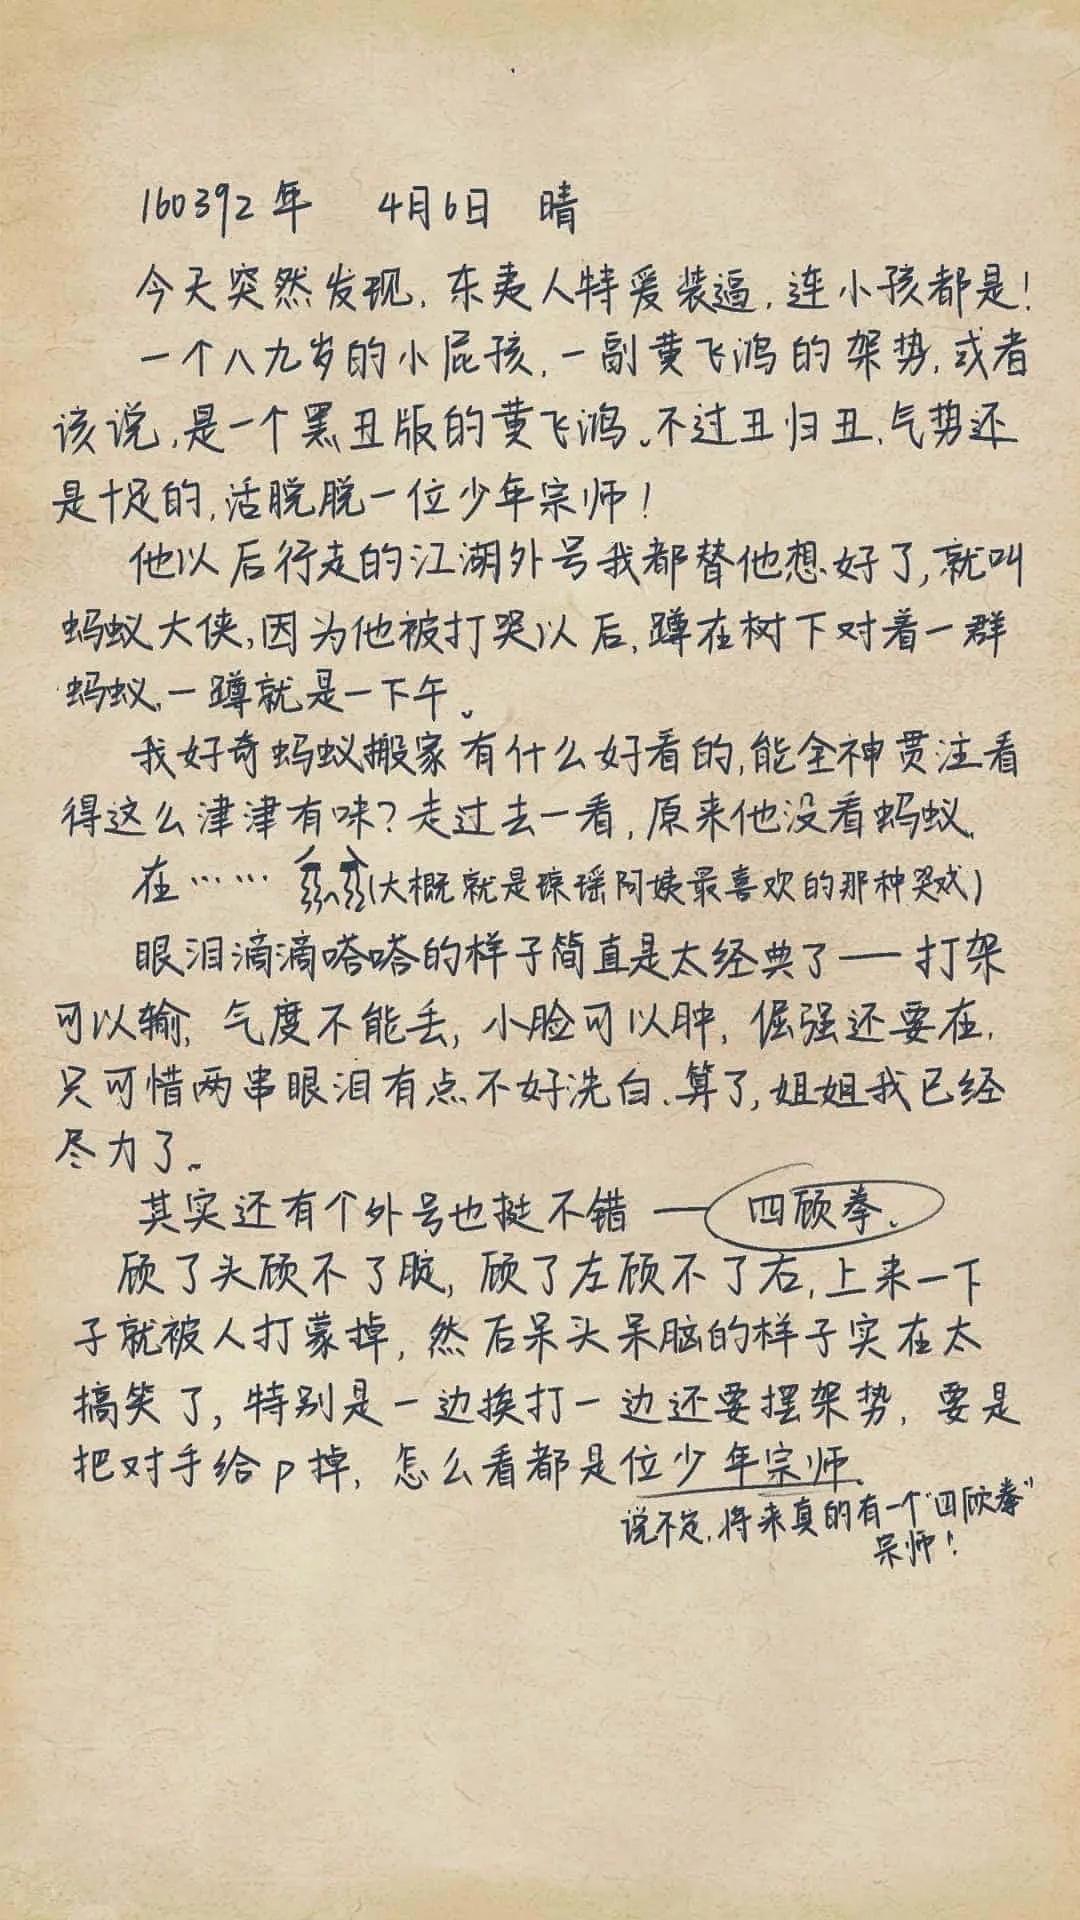 160392年 4月6日 晴
今天突然发现,东夷人特爱装逼,连小孩都是!
一个八九岁的小屁孩,一副黄飞鸿的架势,或者
该说,是一个黑丑版的黄飞鸿。不过丑归丑,气势还
是十足的,活脱脱一位少年宗师!
他以后行走的江湖外号我都替他想好了,就叫
蚂蚁大侠,因为他被打哭以后,蹲在树下对着一群
蚂蚁,一蹲就是一下午。
我好奇蚂蚁搬家有什么好看的,能全神贯注看
得这么津津有味?走过去一看,原来他没看蚂蚁,
在……(大概就是琼瑶阿姨最喜欢的那种哭戏)
眼泪滴滴嗒嗒的样子简直是太经典了——打架
可以输,气度不能丢,小脸可以肿,倔强还要在,
只可惜两串眼泪有点不好洗白.算了,姐姐我已经
尽力了。
其实还有个外号也挺不错——四顾拳、
顾了头顾不了腚,顾了左顾不了右,上来一下
子就被人打蒙掉,然后呆头呆脑的样子实在太
搞笑了,特别是一边挨打一边还要摆架势,要是
把对手给p掉,怎么看都是位少年宗师.
说不定,将来真的有一个"四顾拳"
宗师!